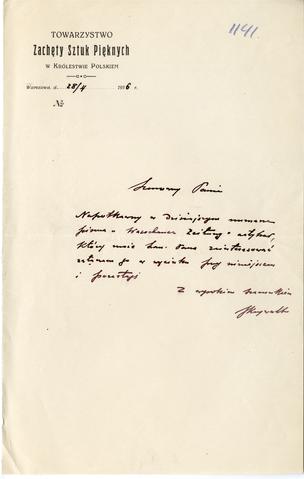 TOWARZYSTWO
Zachęty Sztuk Pięknych
W KRÓLESTWIE POLSKIEM
1141.
Warszawa, d. 25/4 1916 r.
№
Szanowny Panie
Napotkawszy w dzisiejszym numerze
pisma „Warschauer Zeitung" artykuł,
który może Sz. Pana zainteresować
w wycinku przy niniejszem
i przesyłam
Z wysokim szacunkiem